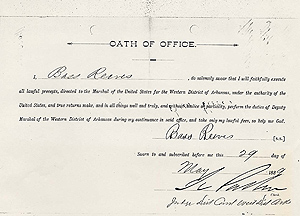 OATH OF OFFICE.
I, Bass Reeves, do solemnly swear that I will faithfully execute
all lawful precepts, directed to the Marshal of the United States for the Western District of Arkansas, under the authority of the
United States, and true returns make, and in all things well and truly, and without malice or partiality, perform the duties of Deputy
Marshal of the Western District of Arkansas during my continuance in said office, and take only my lawful fees, so help me God.
Bass Reeves [L.S.]
Sworn to and subscribed before me this 29 day of
May 188
Clerk